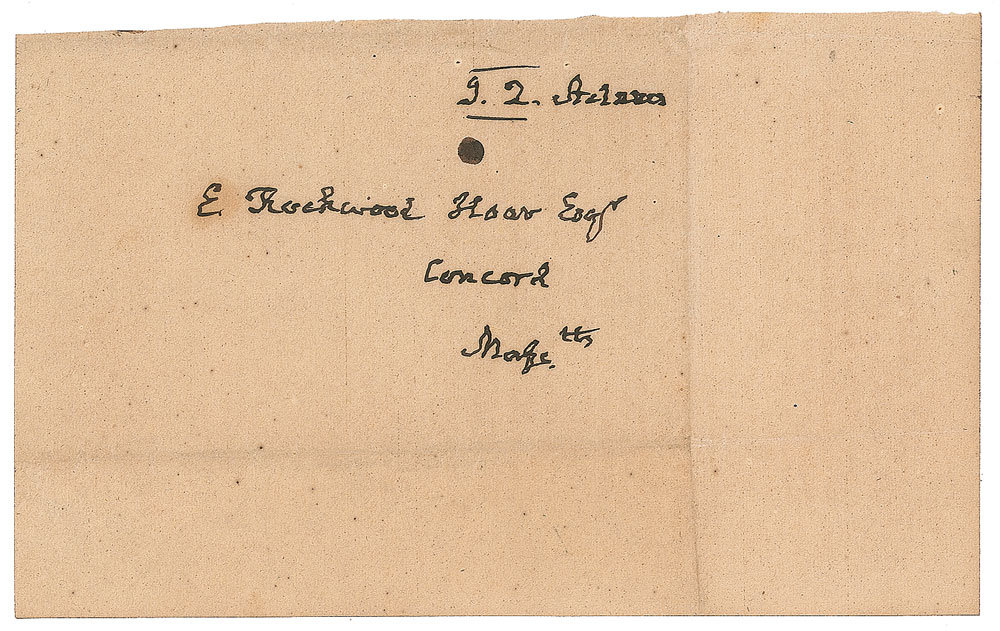 J. Q. Adams
E. Rockwood Hoar Esqr
Concord
Massctts